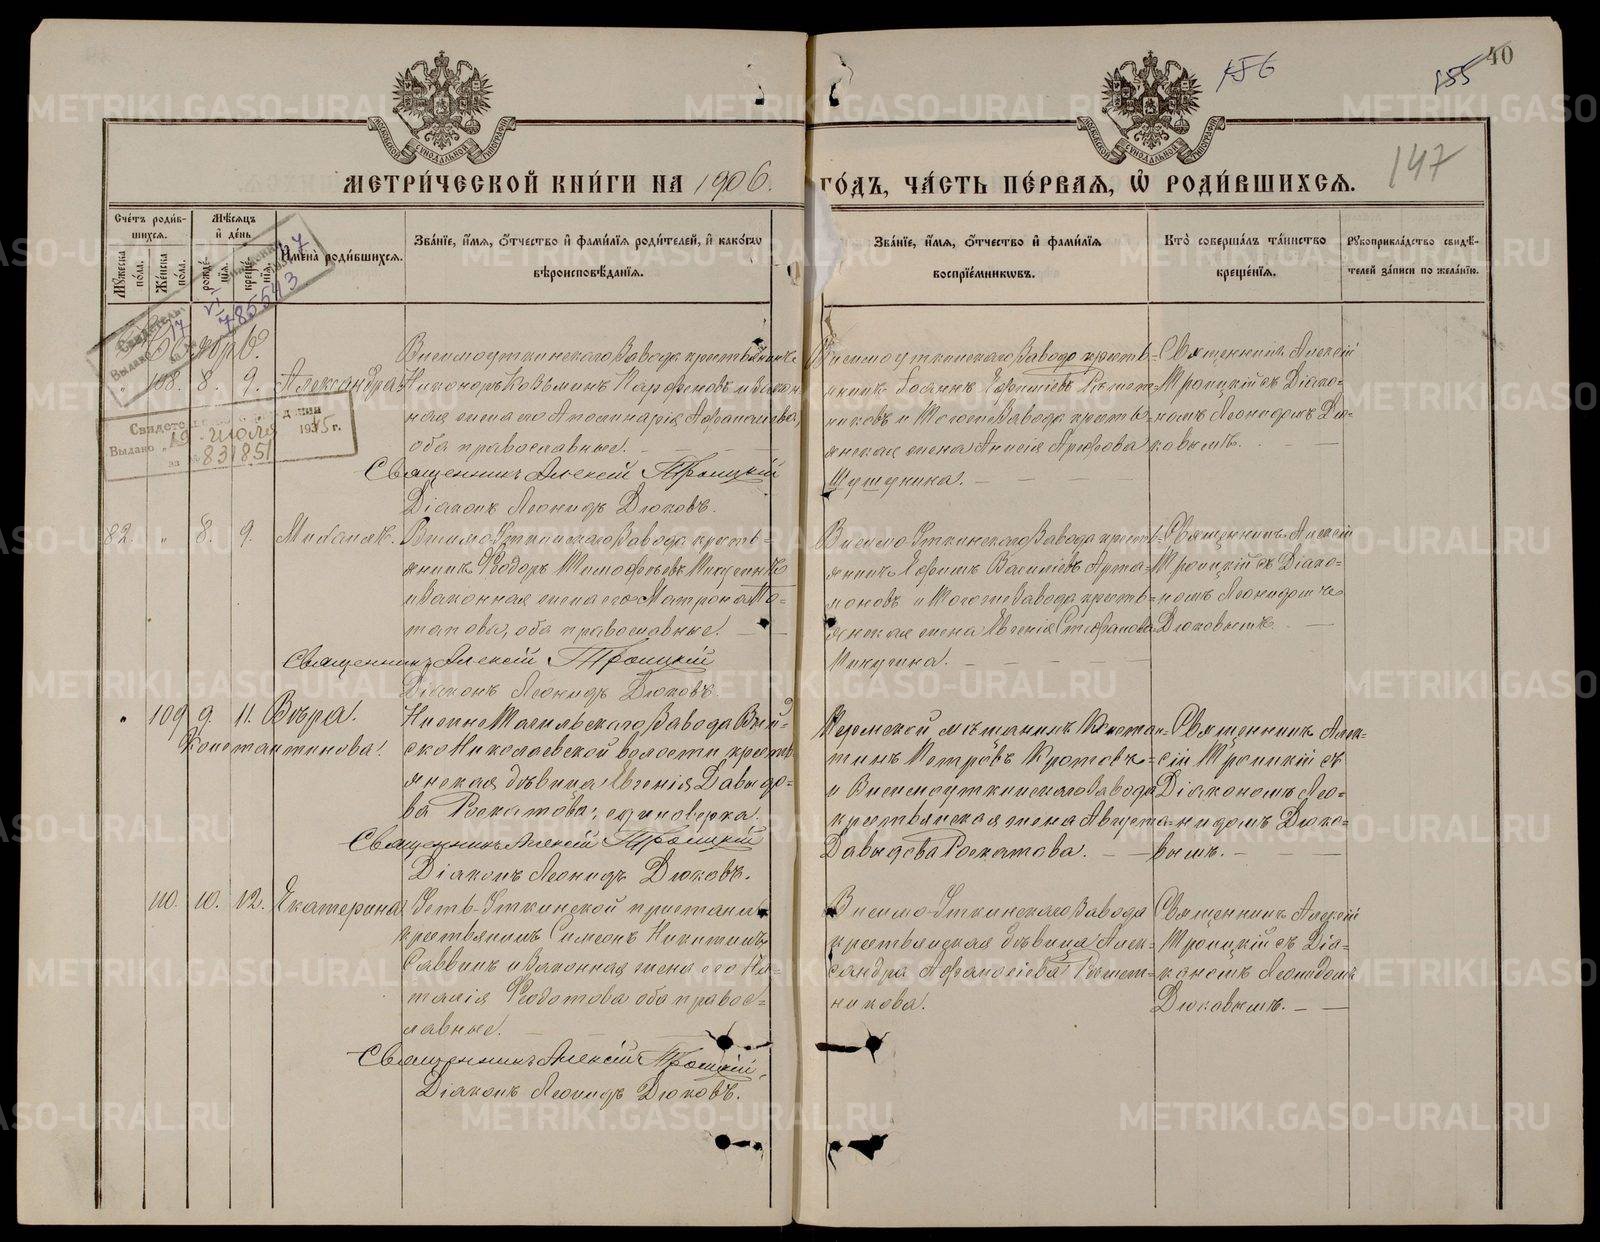 156
155
40
147
МЕТРИ́ЧЕСКОЙ КНИ́ГИ НА 1906.
ГО́ДЪ, ЧА́СТЬ ПЕ́РВАЯ, Ѡ РОДИ́ВШИХСЯ.
Сче́тъ роди́в-
шихся.
Му́жеска
по́ла.
Же́нска
по́ла.
Мѣ́сяцъ
и́ де́нь
рожде́-
нїя.
креще́-
нїя.
И́мена̀ роди́вшихся.
Зва́нїе, и́мя, о́тчество и́ фами́лїя роди́телей, и́ како́гѡ
вѣроисповѣ́данїя.
Зва́нїе, и́мя, о́тчество и́ фами́лїя
воспрїе́мниковъ.
Кто̀ соверша́лъ та́инство
креще́нїя.
Рꙋкоприкла́дство свидѣ́-
телей за́писи по жела́нїю.
785543
Висимоуткинскаго Завода крестьянинъ
108. 8. 9. Александра Никоноръ Козьминъ Парфеновъ и закон-
ная жена его Аполинарія Афанасьева,
оба православные.
Священникъ Алексій Троицкій
Діаконъ Леонидъ Дюковъ.
Висимоуткинскаго Завода кресть-
янинъ Іоаннъ Ефимовъ Решет-
никовъ и Тогоже Завода кресть-
янская жена Анисія
Шушунина.
Священникъ Алексій
Троицкій съ Діако-
номъ Леонидомъ Дю-
ковымъ.
Выдано 19 - июля 1935 г.
за № 831851
82. " 8. 9. Михаилъ. Висимо-Уткинскаго Завода кресть-
янинъ Ѳеодоръ Тимофеевъ Микушинъ
и законная жена его Матрона По-
тапова, оба православные.
Священникъ Алексій Троицкій
Діаконъ Леонидъ Дюковъ.
Висимо-Уткинскаго Завода кресть-
янинъ Ефимъ Василіевъ Арта-
моновъ и Тогоже Завода кресть-
янская жена Евгенія Стефанова
Микушина.
Священникъ Алексій
Троицкій съ Діако-
номъ Леонидомъ
Дюковымъ.
" 109 9. 11. Вѣра.
Константинова.
Нижне Тагильскаго Завода Вый-
ско Николаевской волости кресть-
янская дѣвица Евгенія Давыдо-
ва Роскатова, единовѣрка.
Священникъ Алексій Троицкій
Діаконъ Леонидъ Дюковъ.
Пермской мѣщанинъ Констан-
тинъ Петровъ Кротовъ
и Висимоуткинскаго Завода
крестьянская жена Августа
Давыдова Роскатова.
Священникъ Алек-
сій Троицкій съ
Діакономъ Лео-
нидомъ Дюко-
вымъ.
110. 10. 12. Екатерина Усть-Уткинской пристани
крестьянинъ Симеонъ Никитинъ
Саввинъ и законная жена его На-
талія Ѳеодотова оба правос-
лавные.
Священникъ Алексій Троицкій
Діаконъ Леонидъ Дюковъ.
Висимо-Уткинскаго Завода
крестьянская дѣвица Алек-
сандра Афанасіева Решет-
никова.
Священникъ Алексій
Троицкій съ Діа-
кономъ Леонидомъ
Дюковымъ.
METRIKI.GASO-URAL.RU